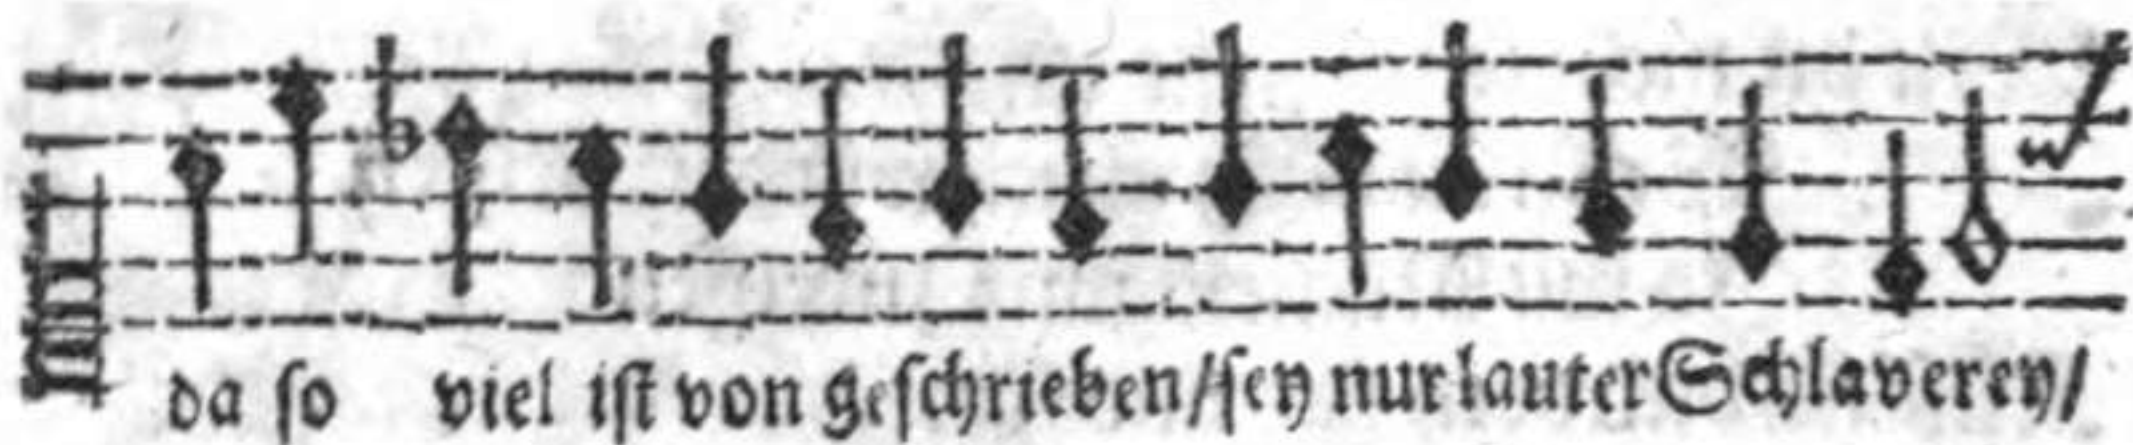 da ſo viel iſt von geſchrieben/ſey nur lauter Schlaverey/